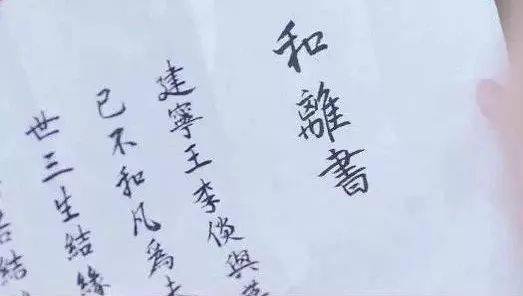 和離書
建寧王李倓與
已不和凡為夫
世三生結緣
結